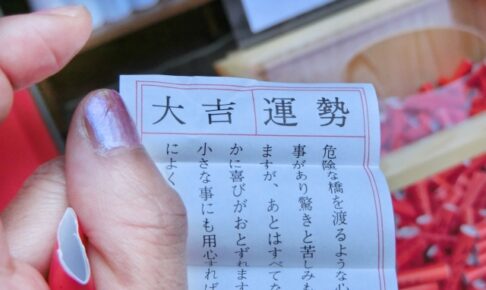 運勢
大吉
危険な橋を渡るような心
事があり驚きと苦しみも
ますが、あとはすべてな
かに喜びがおとずれます
小さな事にも用心すれば
によく